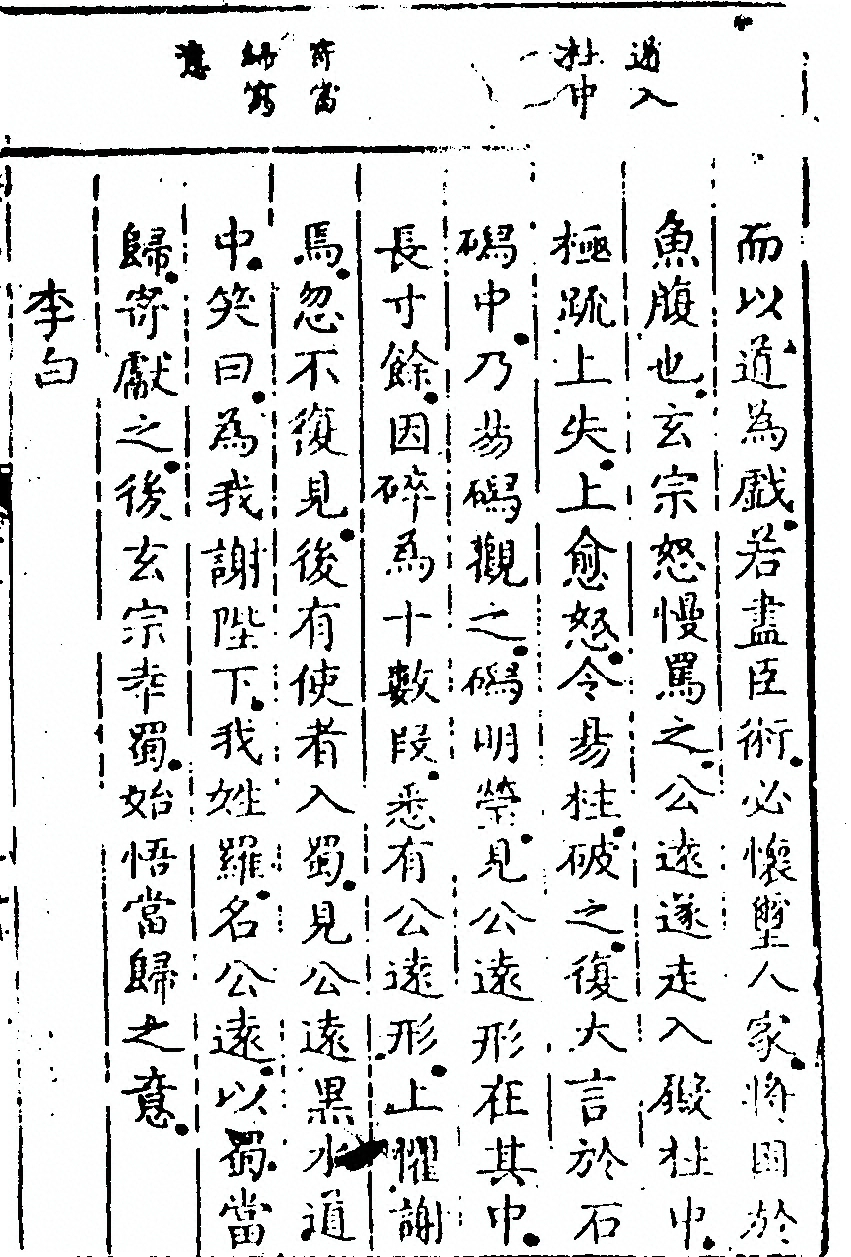 遁入
柱中
寄當
歸寓
意
而以道為戲若盡臣術必懷璽人家將困於
魚腹也玄宗怒慢罵之公遠遂走入殿柱中
極疏上失上愈怒令易柱破之復大言於石
碼中乃易碼觀之碼明瑩見公遠形在其中
長寸餘因碎為十數段悉有公遠形上懼謝
焉忽不復見後有使者入蜀見公遠黑水道
中笑曰為我謝陛下我姓羅名公遠以蜀當
歸寄獻之後玄宗幸蜀始悟當歸之意
李白